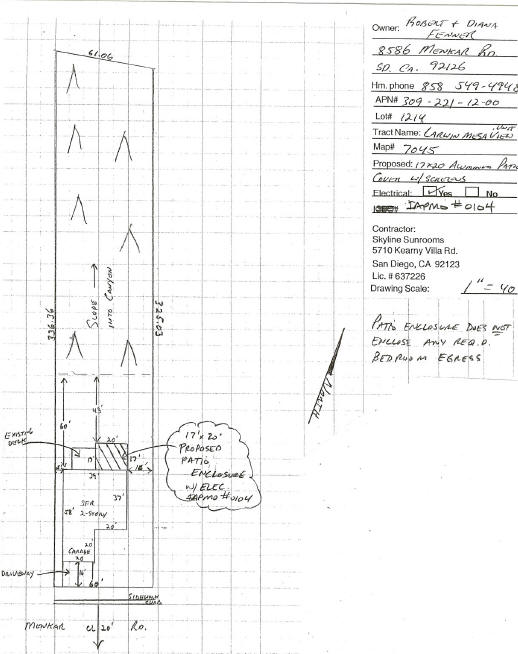 Owner: ROBERT & DIANA
FENNER
8586 MENKAR RD.
SD. CA. 92126
Hm. phone 858 549-4948
APN# 309-221-12-00
Lot# 1214
Tract Name: LARWIN MESA VIEW UNIT
Map# 7045
Proposed: 17x20 ALUMINUM PATIO
COVER W/ SCREENS
Electrical: Yes No
IAPMO #0104
Contractor:
Skyline Sunrooms
5710 Kearny Villa Rd.
San Diego, CA 92123
Lic. # 637226
Drawing Scale: 1" = 40
PATIO ENCLOSURE DOES NOT
ENCLOSE ANY REQ.D.
BEDROOM EGRESS
61.06
336.36
SLOPE
INTO CANYON
325.03
NORTH
60'
43'
EXISTING
DECK
20'
17'
17'
39'
17'x20'
PROPOSED
PATIO
ENCLOSURE
W/ ELEC
IAPMO #0104
37'
SFR
2-STORY
58'
20'
20'
GARAGE
20
DRIVEWAY
60'
SIDEWALK
CURB
MENKAR CL 20' RD.